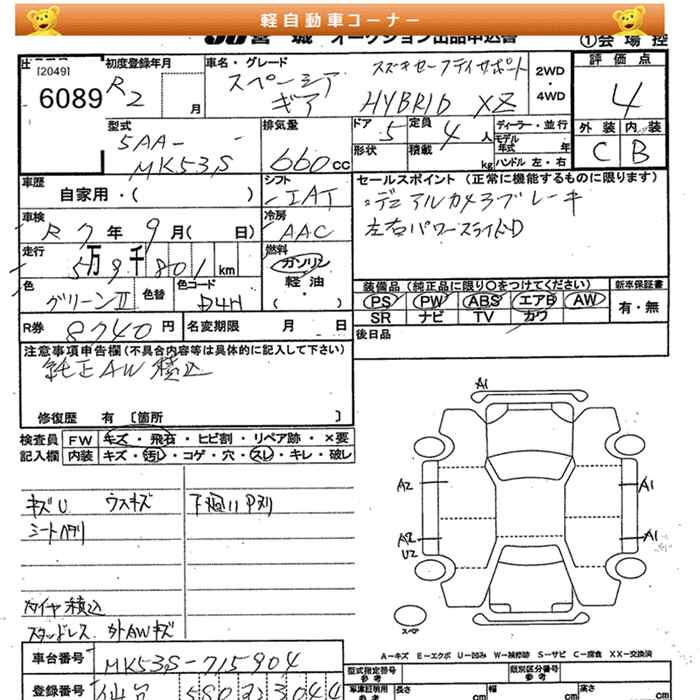 軽自動車コーナー
JU 宮城 オークション出品申込書 ①会場控
[2049]
6089
初度登録年月
R2 月
車名・グレード
スペーシア
ギア
スズキセーフティサポート
HYBRID XZ
2WD
・
4WD
評価点
4
外装 内装
C B
型式
5AA-
MK53S
排気量
660cc
ドア 5 定員 4 人
形状 積載 kg
ディーラー・並行
モデル
年式 年
ハンドル 左・右
車歴
自家用・( )
シフト
IAT
セールスポイント (正常に機能するものに限ります)
デュアルカメラブレーキ
左右パワースライドD
車検
R7年9月( 日)
冷房
AAC
走行
5万9千801km
燃料
ガソリン
・
軽油
・
( )
色
グリーンⅡ
色替
色コード
R券 8740円
名変期限 月 日
装備品 (純正品に限り○をつけてください)
PS PW ABS エアB AW
SR ナビ TV カワ
新車保証書
有・無
後日品
注意事項申告欄(不具合内容等は具体的に記入して下さい)
純正AW積込
修復歴 有 [箇所 ]
検査員
記入欄
FW キズ・飛石・ヒビ割・リペア跡・×要
内装 キズ・汚レ・コゲ・穴・スレ・キレ・破レ
キズU ウスキズ
シートヘタリ
下廻り
タイヤ積込
スタッドレス 外AWキズ
A1
A2
A1
A2
U2
A1
スペア
A-キズ E-エクボ U-凹み W-補修跡 S-サビ C-腐食 XX-交換済
車台番号 MK53S-715904
登録番号 仙台 580
型式指定番号
参考
類別区分番号
参考
車庫証明用
参考
長さ cm 幅 cm 高さ cm